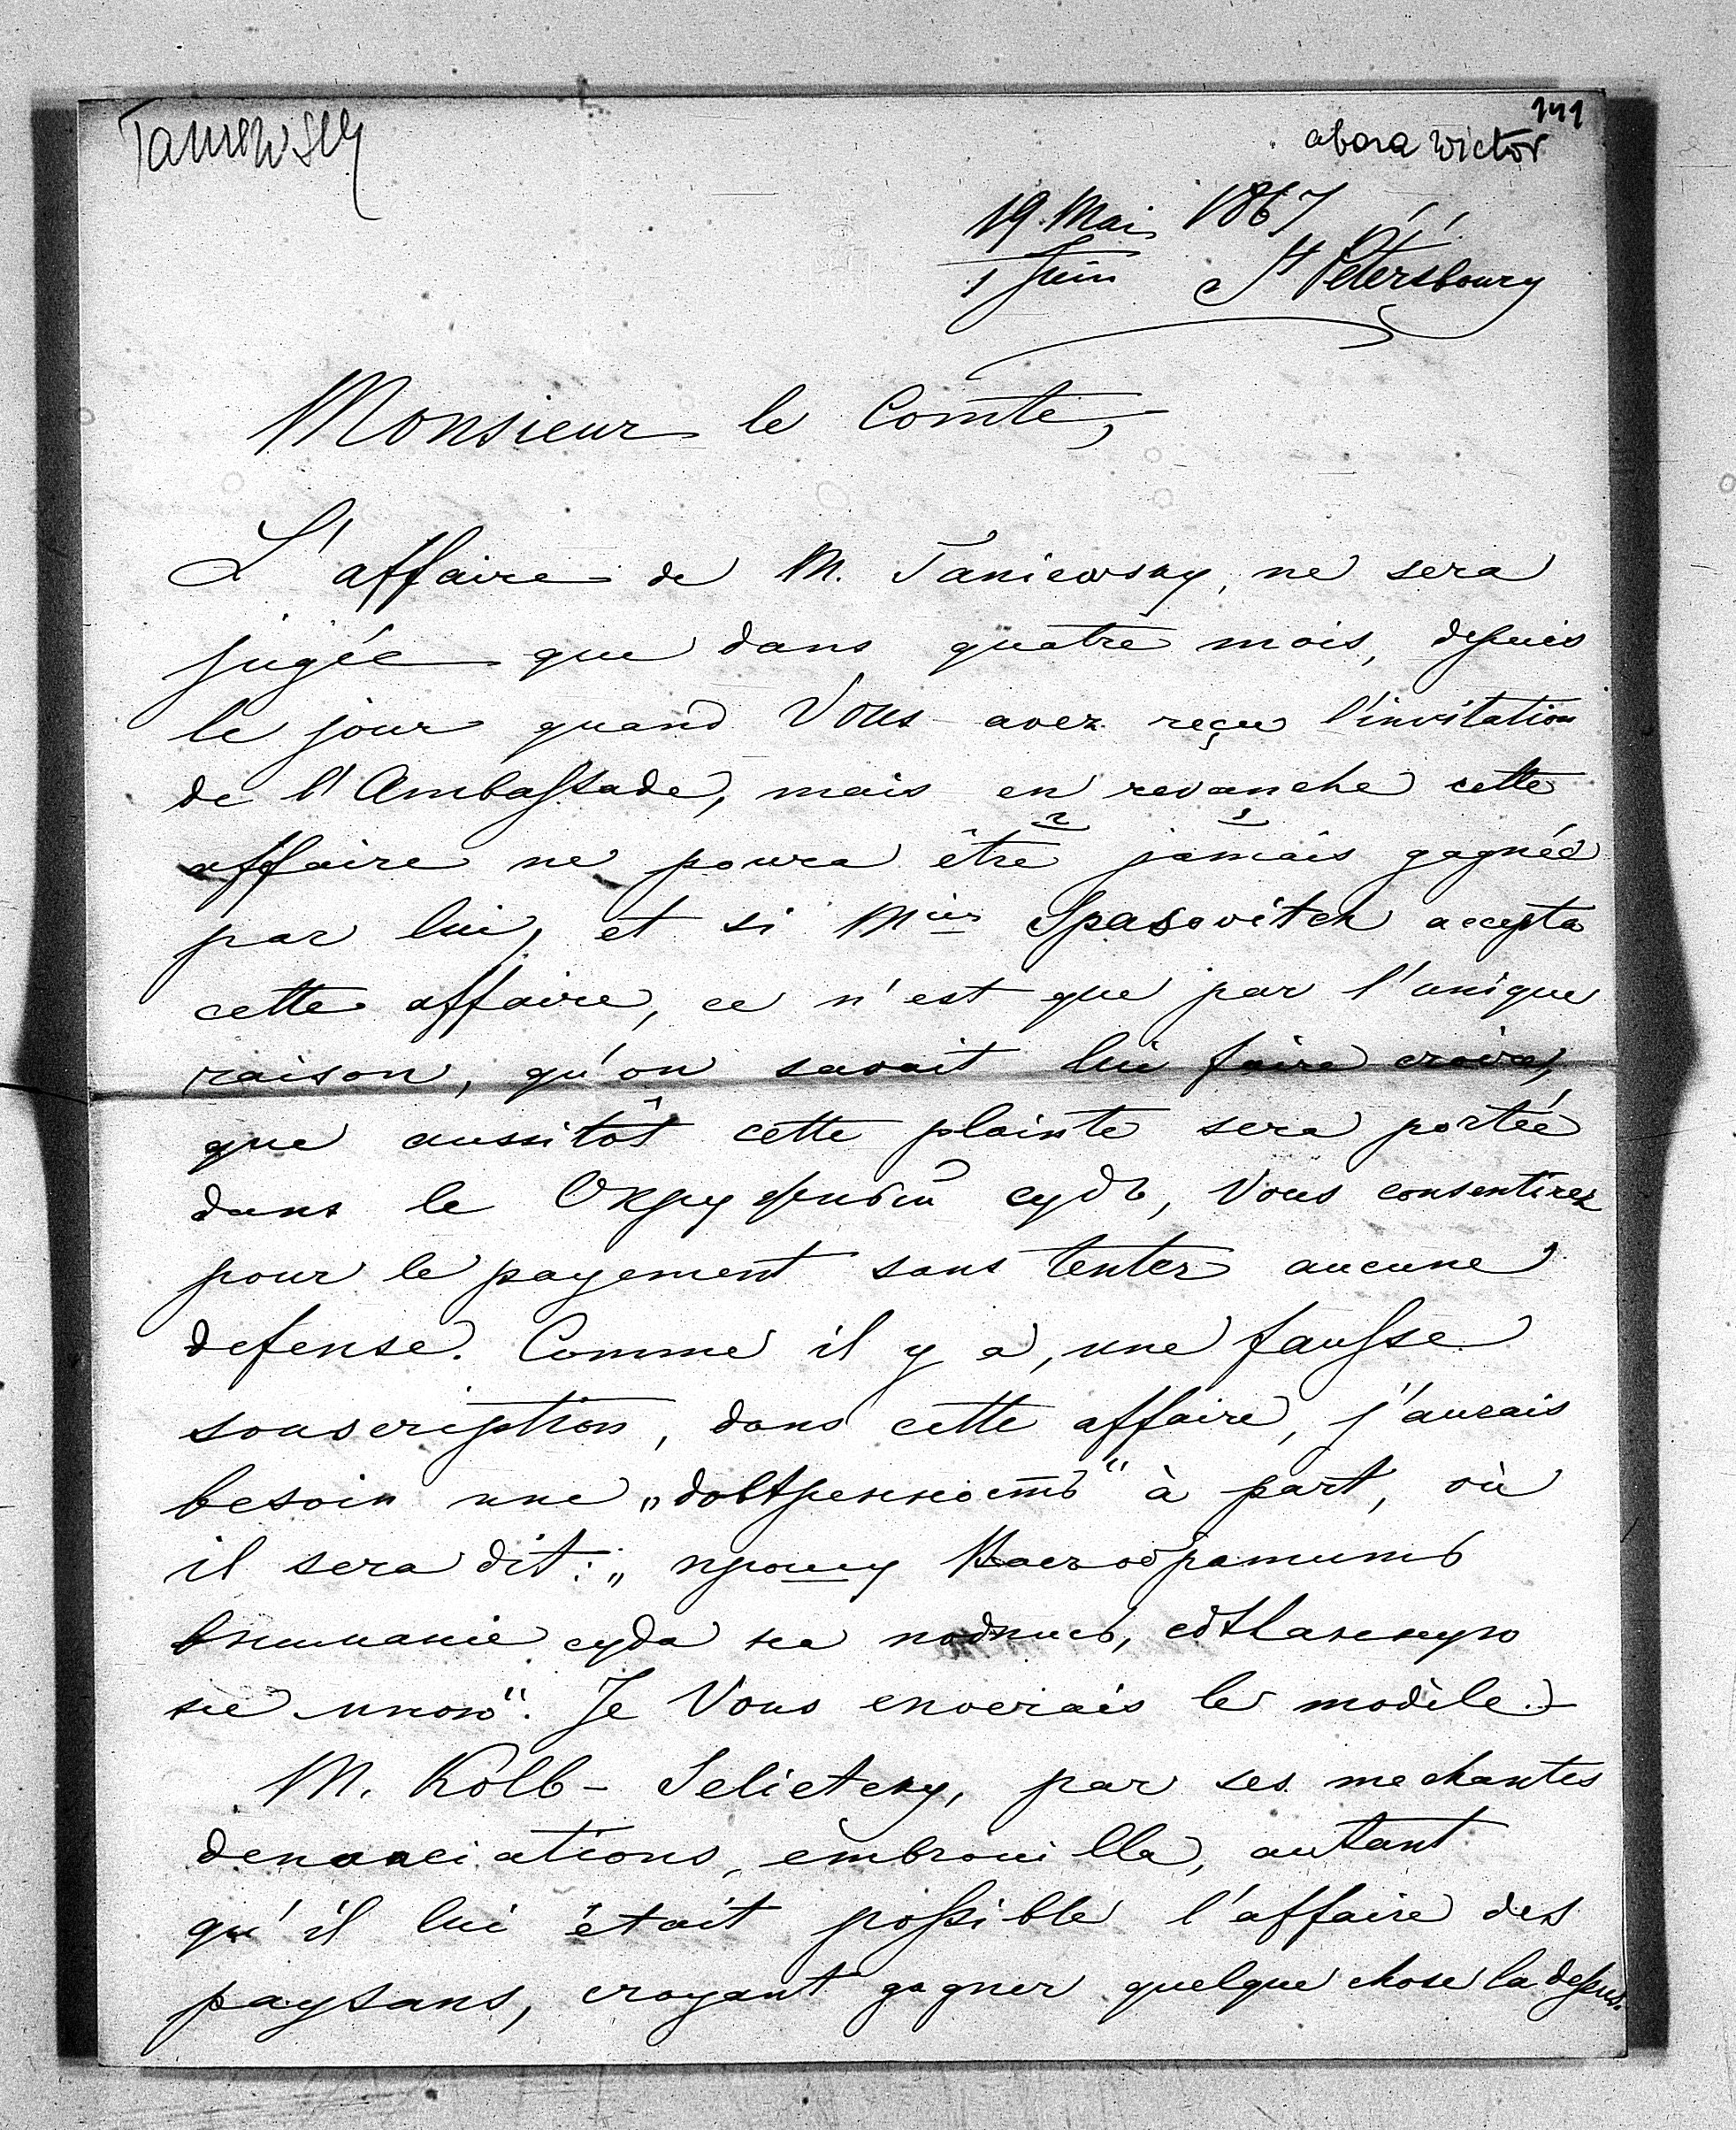 Taniewsky
141
Wictor
19 Mai 1867
1 Juin St Pétérsbourg
Monsieur le Comte,
L'affaire de M. Taniewsky, ne sera
jugée que dans quatre mois, depuis
le jour quand Vous avez reçu l'invitation
de l'Ambassade, mais en revanche cette
affaire ne poura être jamais gagnée
par lui, et si Mier Spasovitch accepta
cette affaire, ce n'est que par l'unique
raison, qu'on savait lui faire croire,
que aussitôt cette plainte sera portée
dans le Окружный судъ, Vous consentirez
pour le payement sans tenter aucune
defense. Comme il y a, une fausse
souscription, dans cette affaire, j'aurais
besoin une „довѣренность“ à part, où
il sera dit: „прошу Васъ обратить
вниманіе суда на подпись, сдѣланную
не мною“. Je Vous enverais le modèle.
M. Kolb-Selietsky, par ses mechantes
denonciations, embrouilla, autant
qu'il lui était possible l'affaire des
paysans, croyant gagner quelque chose la dessus.